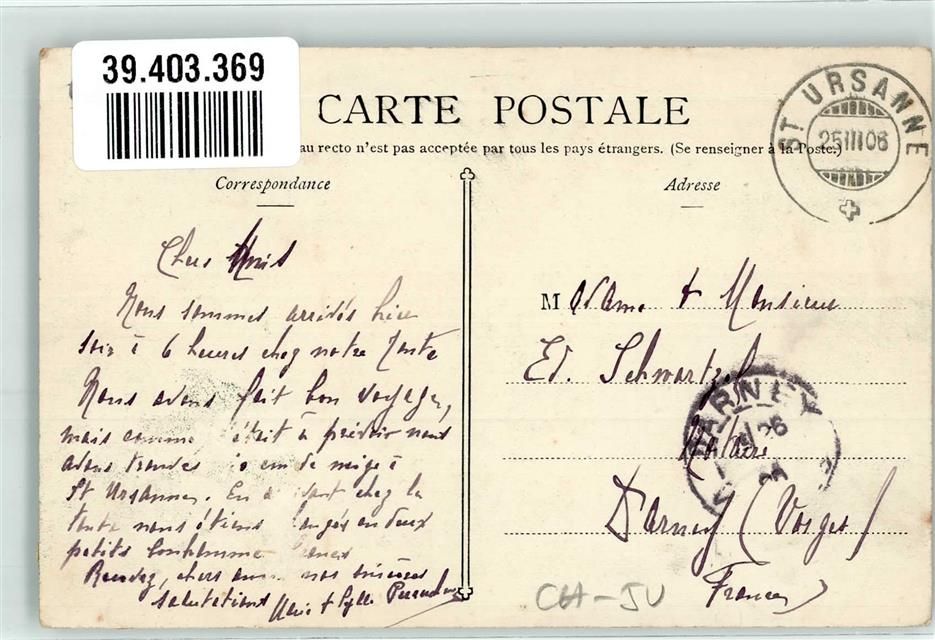 39.403.369
CARTE POSTALE
au recto n'est pas acceptée par tous les pays étrangers. (Se renseigner à la Poste.)
Correspondance
Adresse
ST. URSANNE
25 III 06
Chers Amis
Nous sommes arrivés hier
soir à 6 heures chez notre Tante
Nous avons fait bon voyage,
mais comme était à prévoir nous
avons trouvés 10 cm de neige à
St Ursanne. En a ant chez la
tante nous étions en deux
petits bonhomme
Recevez, chers nos sincères
salutations
Madame & Monsieur
Ed. Schwartzel
Notaire
Darney (Vosges)
France
DARNEY
26
CH-JU